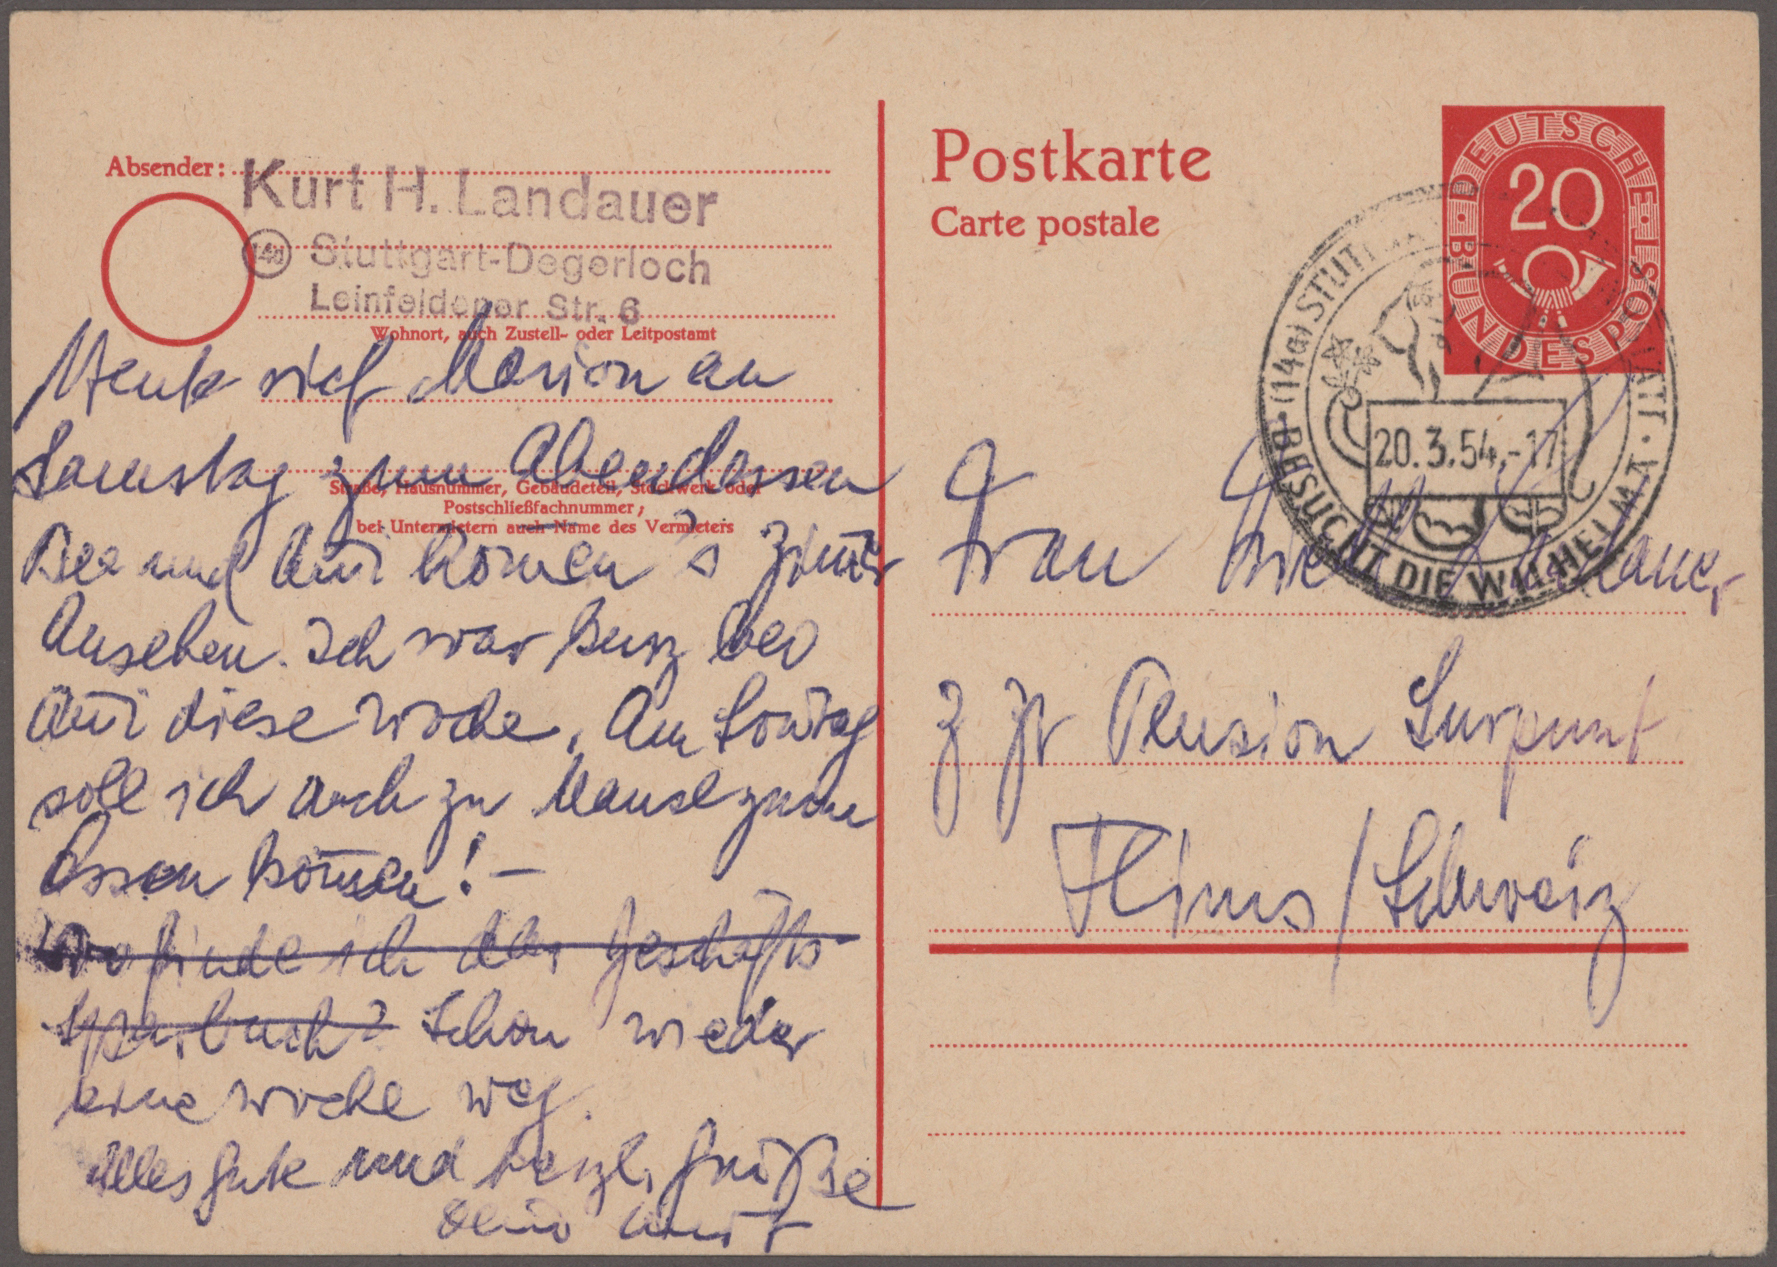 Absender:
Kurt H. Landauer
(14a) Stuttgart-Degerloch
Leinfeldener Str. 6
Wohnort, auch Zustell- oder Leitpostamt
Straße, Hausnummer, Gebäudeteil, Stockwerk oder
Postschließfachnummer;
bei Untermietern auch Name des Vermieters
sich Marion an
Samstag zum Abendessen
und komen 's Zimer
Ansehen. Ich war kurz bei
diese Woche. Am Sontag
soll ich auch zu zum
Essen komen! -
Wo finde ich das Geschäfts
sparbuch? Schon wieder
eine Woche weg.
Alles Gute und herzl. Grüße
Dein Kurt
Postkarte
Carte postale
DEUTSCHE BUNDESPOST
20
(14a) STUTTGART
20.3.54.-17
BESUCHT DIE WILHELMA
Frau Landauer
z Zt Pension Surpunt
Flims / Schweiz